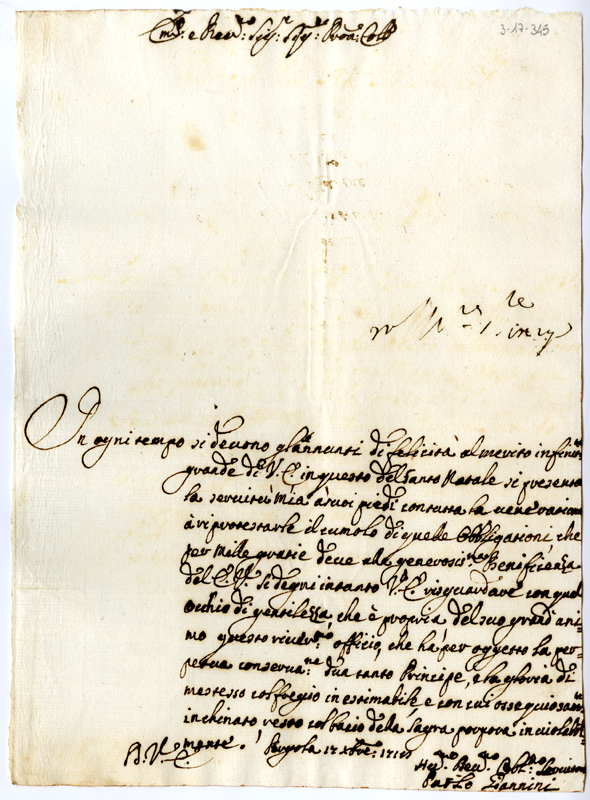 3-17-345
Em.mo e Rev.mo Sig.r Sig.r Pron. Coll.
In ogni tempo si deuono gl'Annunti di felicità al merito infinit.te
grande di V. E. in questo del Santo Natale si presenta
la seruitù mia a' suoi piedi con tutta la uenerazione
à riprotestarle il cumolo di quelle obbligationi, che
per mille gratie deue alla generosis.ma Beneficienza
del E. V. si degni intanto V.a E. risguardare con quel
occhio di gentilezza, che è propria del suo grand'ani-
mo questo riuer.mo officio, che hà per oggetto la per-
petua conserua.ne d'un tanto Principe, e la gloria di
me stesso col fregio inestimabile e con cui ossequiosam.te
inchinato resto col bacio della Sagra porpora inuiolabil-
mente. Pergola 17 Xbre
D. V. E.
Hu.mo Deu.mo Obl.mo
Paolo Giannini